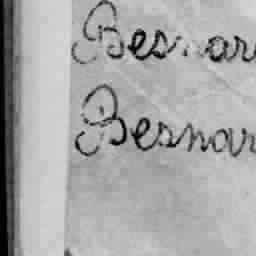 Besnar
Besnar